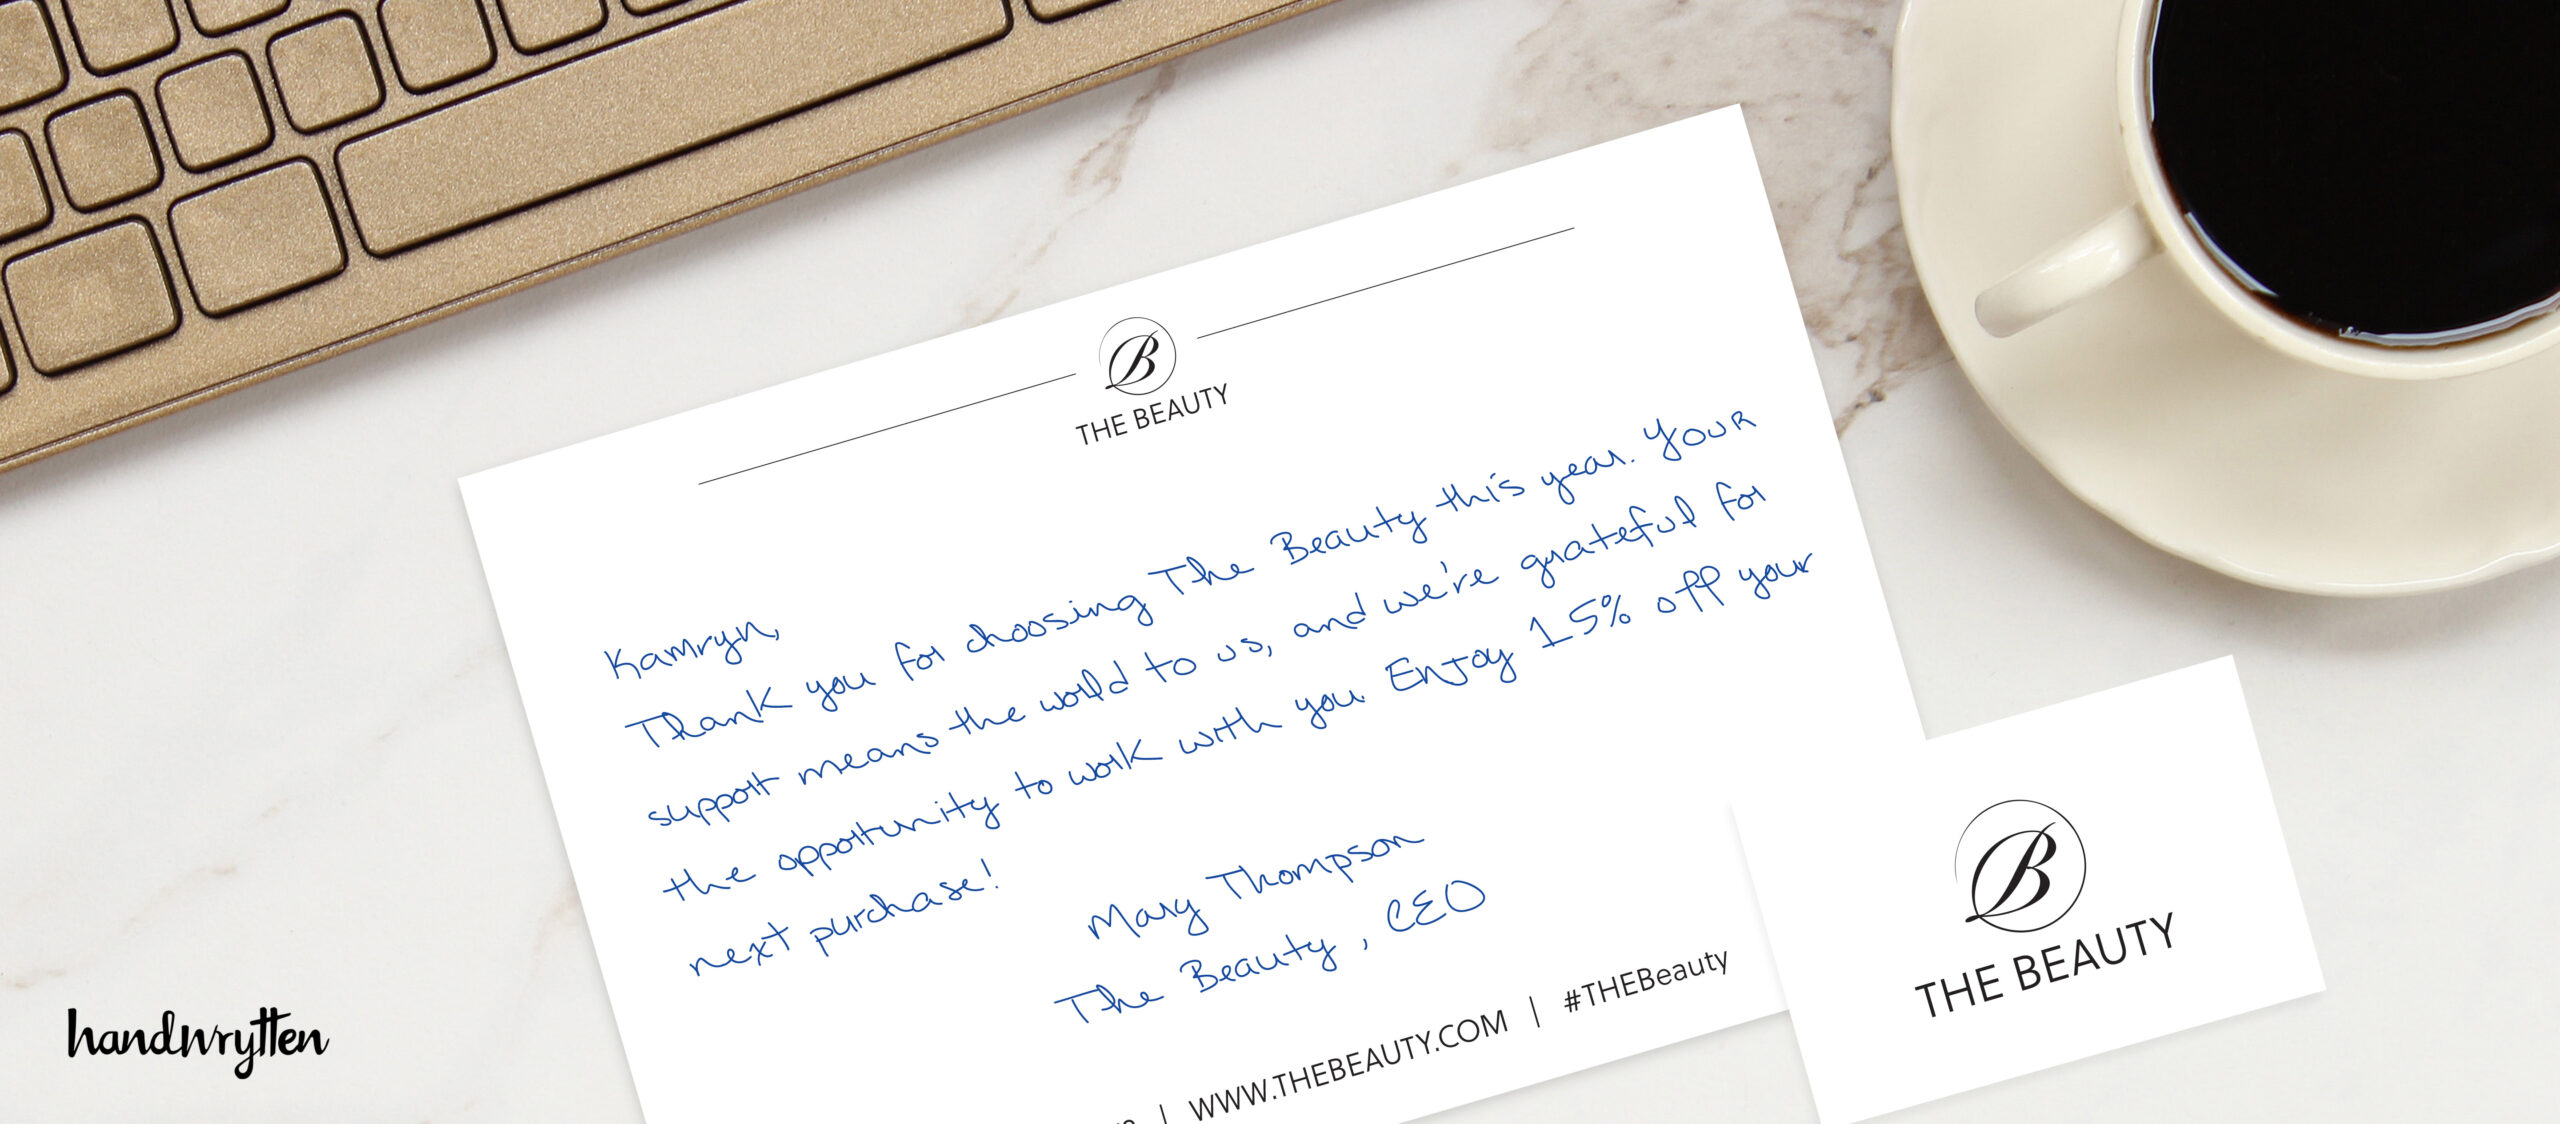 B
THE BEAUTY
Kamryn,
Thank you for choosing The Beauty this year. Your
support means the world to us, and we're grateful for
the opportunity to work with you. Enjoy 15% off your
next purchase!
Mary Thompson
The Beauty, CEO
| WWW.THEBEAUTY.COM | #THEBeauty
B
THE BEAUTY
handwrytten